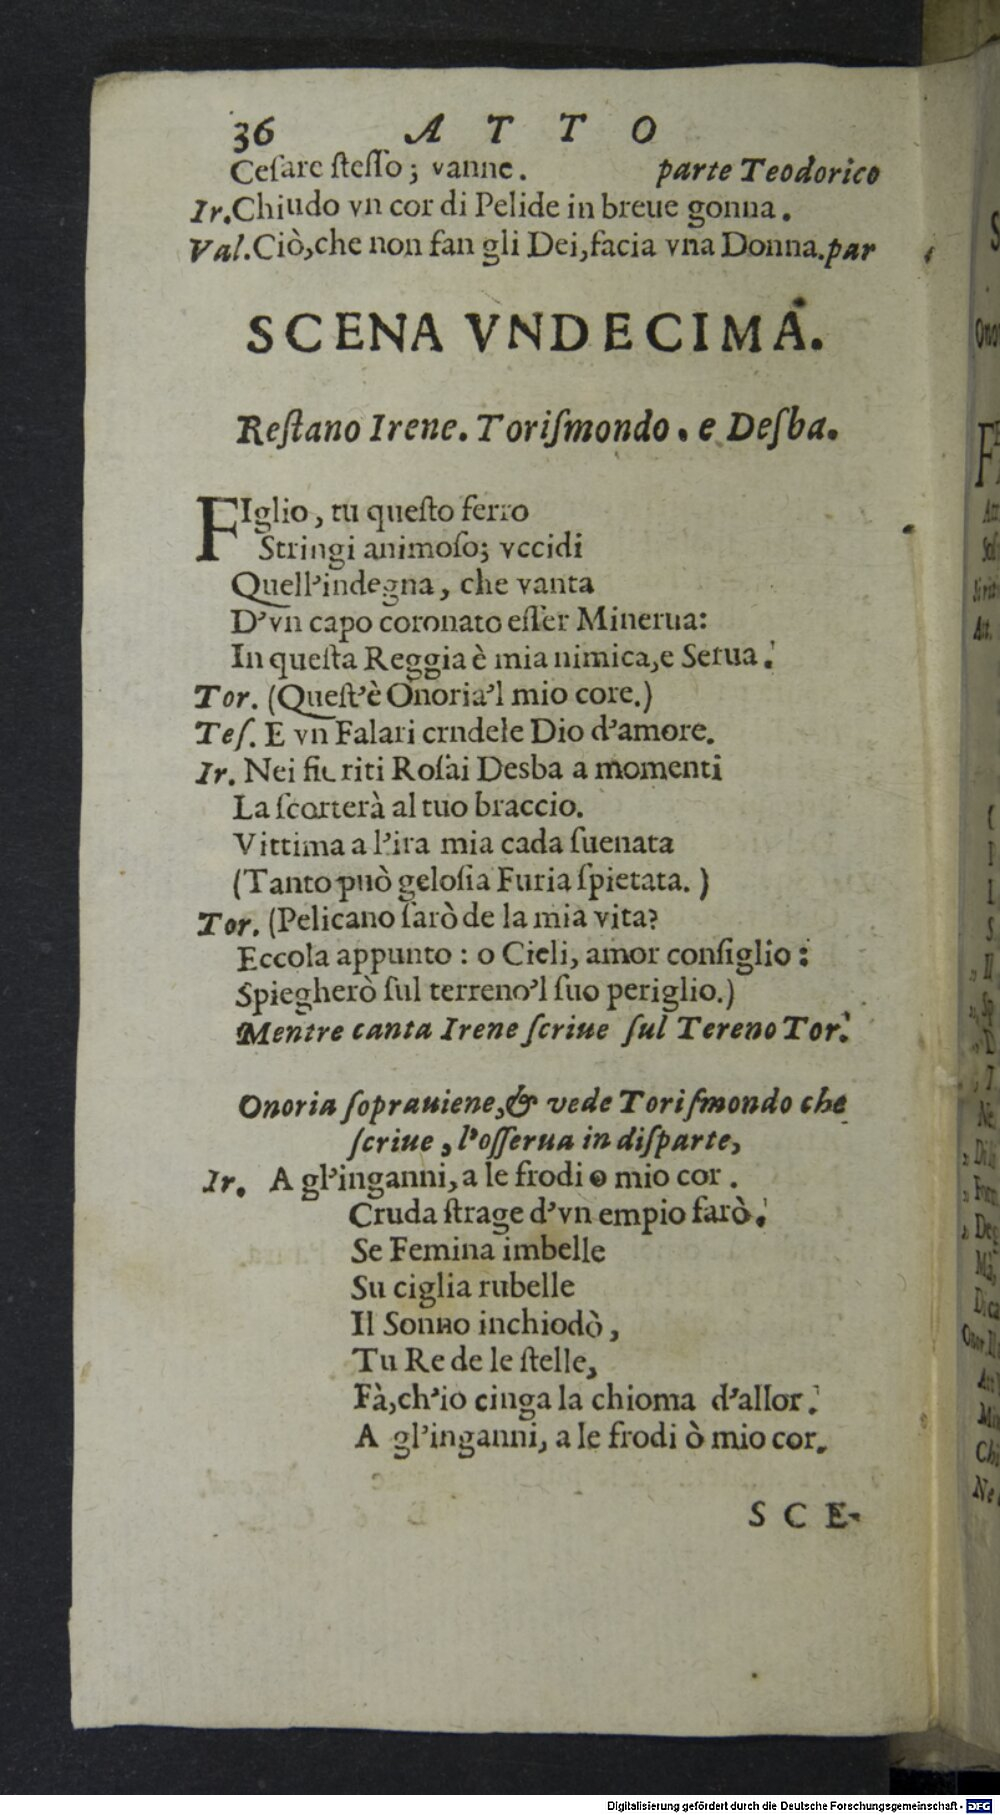 36 ATTO
Ceſare ſteſſo; vanne. parte Teodorico
Ir. Chiudo vn cor di Pelide in breue gonna.
Val. Ciò, che non fan gli Dei, facia vna Donna. par
SCENA VNDECIMA.
Reſtano Irene. Toriſmondo. e Deſba.
FIglio, tu queſto ferro
Stringi animoſo; vccidi
Quell'indegna, che vanta
D'vn capo coronato eſſer Minerua:
In queſta Reggia è mia nimica, e Serua.
Tor. (Queſt'è Onoria'l mio core.)
Teſ. E vn Falari crndele Dio d'amore.
Ir. Nei fioriti Roſai Desba a momenti
La ſcorterà al tuo braccio.
Vittima a l'ira mia cada ſuenata
(Tanto può geloſia Furia ſpietata.)
Tor. (Pelicano ſarò de la mia vita?
Eccola appunto: o Cieli, amor conſiglio:
Spiegherò ſul terreno'l ſuo periglio.)
Mentre canta Irene ſcriue ſul Tereno Tor.
Onoria ſoprauiene, & vede Toriſmondo che
ſcriue, l'oſſerua in diſparte,
Ir. A gl'inganni, a le frodi o mio cor.
Cruda ſtrage d'vn empio farò.
Se Femina imbelle
Su ciglia rubelle
Il Sonno inchiodò,
Tu Re de le ſtelle,
Fà, ch'io cinga la chioma d'allor.
A gl'inganni, a le frodi ò mio cor.
SCE-
Digitalisierung gefördert durch die Deutsche Forschungsgemeinschaft - DFG